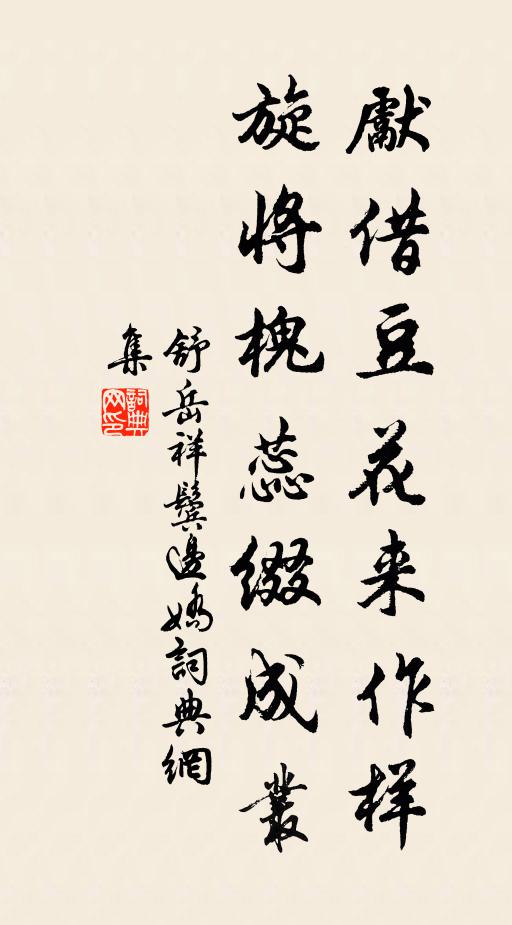 獻借豆花来作样
旋將槐蕊缀成叢
舒岳祥鬓邊嬌詞典網
集
詞典
网印